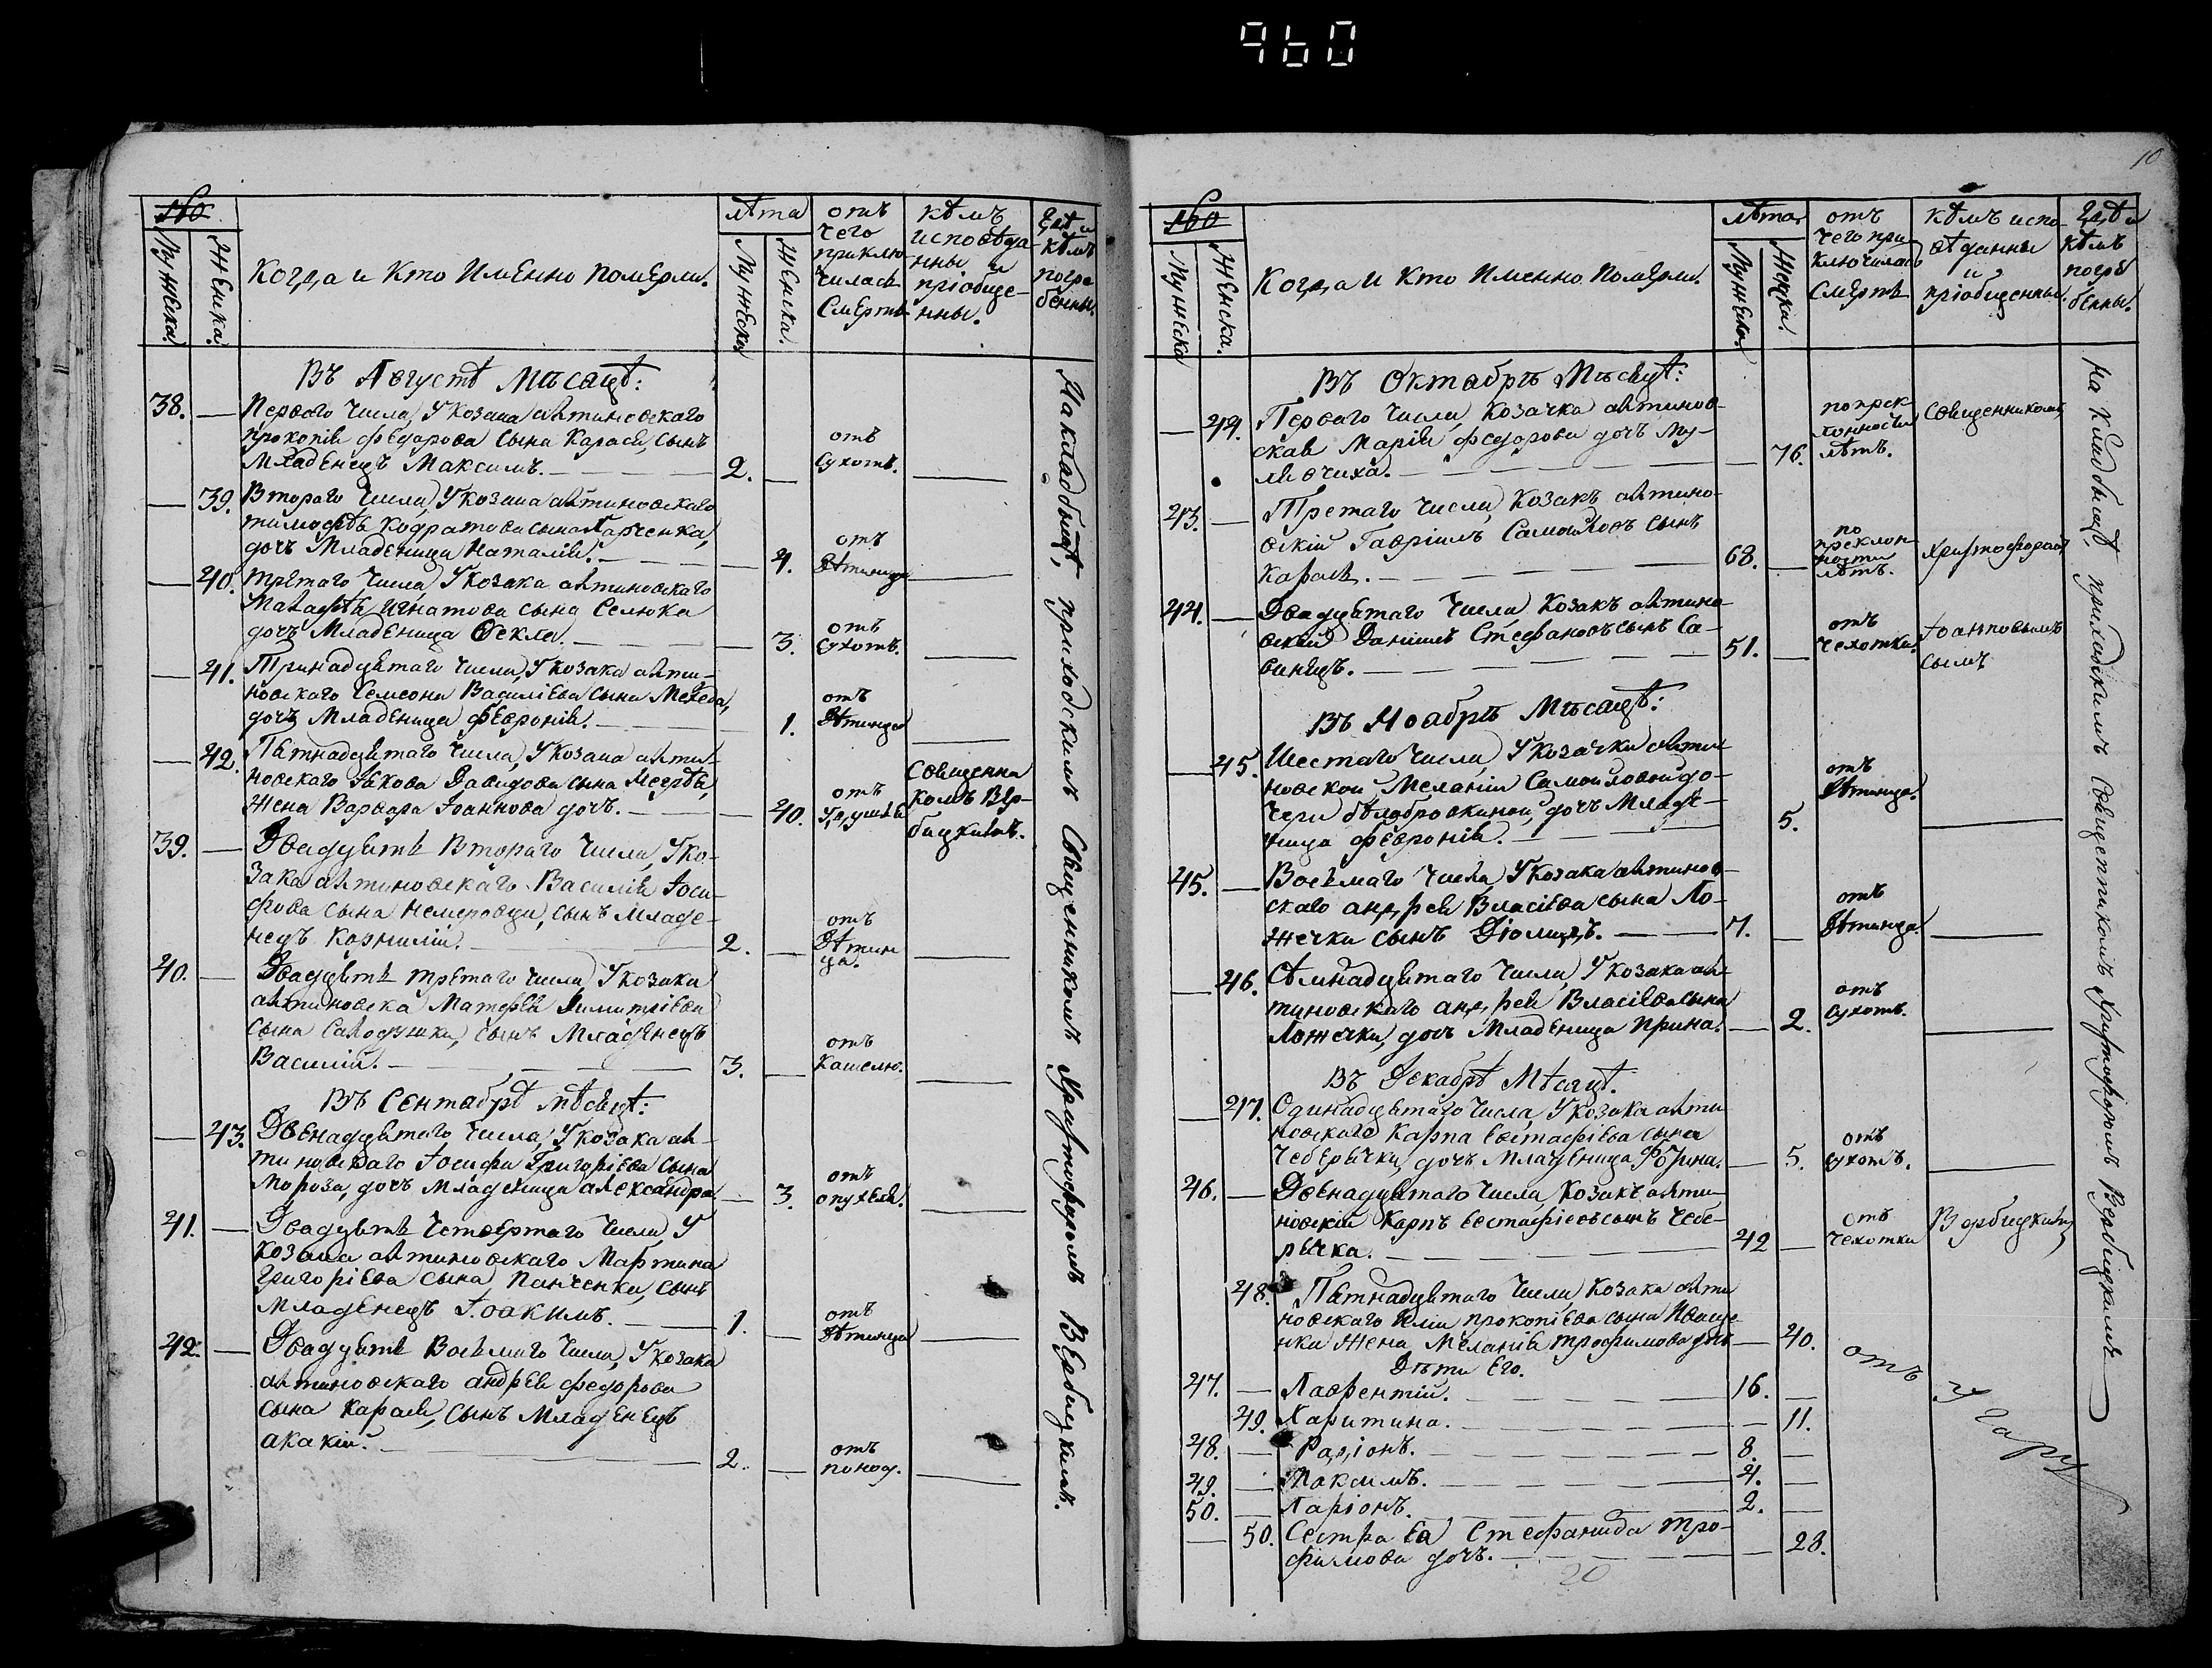 960
10
160
Мужеска.
Женска.
Когда и Кто Именно померли.
лѣта
Мужеска
Женска.
отъ чего приклю
чилась
Смерть
кѣмъ
исповѣда
нны и
пріобще-
нны.
Гдѣ и
кѣмъ
погре
бенны.
Въ Августѣ Мѣсяцѣ:
38. — Перваго Числа, У козака ахтиновскаго
прокопія федорова сына Карася, сынъ
младенецъ Максимъ. — 2. — отъ Сухотъ. —
— 39. Втораго Числа, У козака ахтиновскаго
тимофѣя кодратова сына Гарченка,
дочь Младеница Наталія. — 4. отъ Ѣтница —
— 40. третаго Числа, У козака ахтиновскаго
игнатова сына Селюка
дочь Младеница Ѳекла. — 3. отъ Сухотъ. —
— 41. Тринадцятаго Числа, У козака ахти-
новскаго Семеона Василіева сына Мехеда,
дочь Младеница февронія. — 1. отъ Ѣтница —
— 42. Пятнадцятаго Числа, У козака ахти-
новскаго Якова Давидова сына
жена Варвара Іоаннова дочь. — 40. отъ Священни
комъ Вер-
бицкимъ.
39. — Двадцять Втораго Числа, У ко-
зака ахтиновскаго Василія Іоси-
фова сына Немеровци, сынъ младе-
нецъ Корнилій. 2. — отъ Ѣтни
ца. —
40. — Двадцять третаго Числа, У козака
ахтиновска Матфея Димитріева
Сына Солодушки, Сынъ Младенецъ
Василій. — 3. — отъ Кашелю. —
Въ Сентябрѣ мѣсяцѣ:
— 43. Двенадцятаго Числа, У козака ах-
тиновскаго Іосифа Григоріева Сына
Мороза, дочь младеница александра. — 3. отъ опухели. —
41. — Двадцять Четвертаго Числа, У
козака ахтиновскаго Мартина
Григоріева сына Панченки, сынъ
младенецъ Іоакимъ. — 1. — отъ Ѣтница —
42. — Двадцять Восьмаго Числа, У козака
ахтиновскаго андрея федорова
сына Карася, Сынъ Младенецъ
акакій. — 2. — отъ —
На кладбищѣ, приходскимъ Священникомъ Христофоромъ Вербицкимъ.
160
Мужеска
Женска.
Когда и Кто Именно Померли.
лѣта
Мужеска.
Женска.
отъ
чего при
ключилась
Смерть
кѣмъ испо-
вѣданны
и
пріобщенны.
Гдѣ и
кѣмъ
погре
бенны.
Въ Октябрѣ Мѣсяцѣ:
— 44. Перваго Числа, Козачка ахтинов-
ская Марія федорова дочь Му-
— 76. по прек
лонности
лѣтъ. Священникомъ
43. — Третаго Числа, Козакъ ахтино-
вскій Гавріилъ Самойловъ Сынъ
Карась. — 68. — по
преклон
ности
лѣтъ. Христофоромъ
44. — Двадцятаго Числа, Козакъ ахтино-
вскій Даніилъ Стефановъ сынъ Са-
винецъ. — 51. — отъ
Чехотки. Іоанновымъ
сымъ
Въ Ноябрѣ Мѣсяцѣ:
— 45. Шестаго Числа, У козачки ахти-
новской Меланіи Самойловой до-
чери бѣлобровкиной, дочь Младе-
ница февронія. — 5. отъ Ѣтница. —
45. — Восьмаго Числа У козака ахтинов-
скаго андрея Власіева сына Ло-
жечки сынъ Діомидъ. — 7. — отъ Ѣтница —
— 46. Сѣмнадцятаго Числа, У козака ах-
тиновскаго андрея Власіева сына
Ложечки, дочь Младеница Ирина. — 2. отъ Сухотъ. —
Въ Декабрѣ Мѣсяцѣ.
— 47. Одинадцятаго Числа, У козака ахти-
новскаго Карпа Евстафіева сына
Чеберячки, дочь Младеница — 5. отъ сухотъ. —
46. — Двенадцятаго Числа, Козакъ ахти-
новскій Карпъ Евстафіевъ сынъ Чебе-
рячка. — 42 — отъ
Чехотки Вербицкимъ
48. Пятнадцятаго Числа, Козака ахти
новскаго Иліи прокопіева сына Иваще
нка Жена Меланія трофимова дочь — 40.
Дѣти Его.
47. — Лаврентій. — 16. —
49. Харитина. — 11.
48. — Радіонъ. — 8. —
49. — Максимъ. — 4. —
50. — Ларіонъ. — 2. —
— 50. Сестра Ея Стефанида Тро-
фимова дочь. — 28.
отъ Угару
20
На Кладбищѣ, приходскимъ Священникомъ Христофоромъ Вербицкимъ